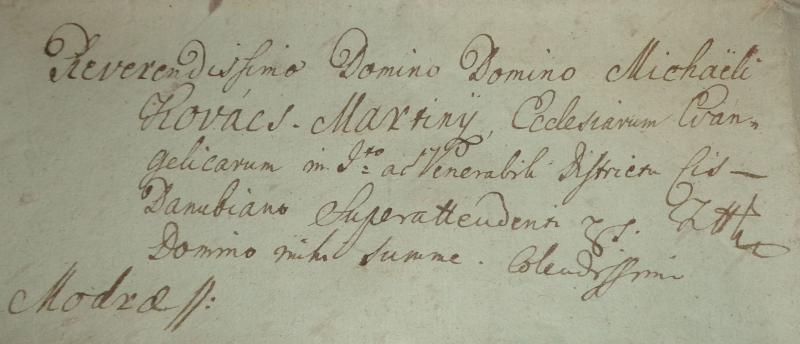 Reverendissimo Domino Domino Michaëli
Kovács-Martinÿ, Ecclesiarum Evan=
gelicarum in I.to ac Venerabili Districtu Cis-
Danubiano Superattendenti
Domino mihi summe. Colendissimo
Modræ